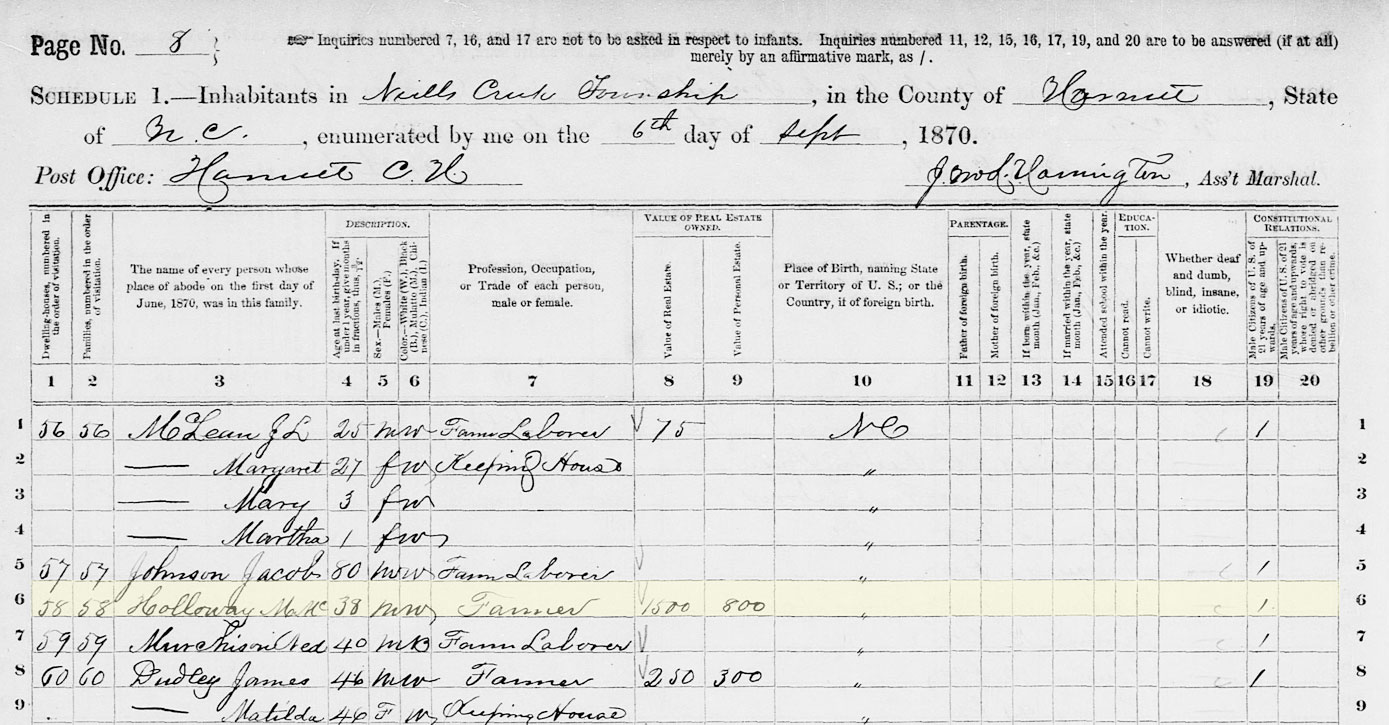 Page No. 8
Inquiries numbered 7, 16, and 17 are not to be asked in respect to infants. Inquiries numbered 11, 12, 15, 16, 17, 19, and 20 are to be answered (if at all)
merely by an affirmative mark, as /.
SCHEDULE 1.—Inhabitants in Neills Creek Township, in the County of Harnett, State
of N. C., enumerated by me on the 6th day of Sept, 1870.
Post Office: Harnett C. H Harrington, Ass't Marshal.
Dwelling-houses, numbered in the order of visitation.
Families, numbered in the order of visitation.
The name of every person whose place of abode on the first day of June, 1870, was in this family.
DESCRIPTION.
Age at last birth-day. If under 1 year, give months in fractions, thus,
Sex.—Males (M.), Females (F.)
Color.—White (W.), Black (B.), Mulatto (M.), Chinese (C.), Indian (I.)
Profession, Occupation, or Trade of each person, male or female.
VALUE OF REAL ESTATE OWNED.
Value of Real Estate.
Value of Personal Estate.
Place of Birth, naming State or Territory of U. S.; or the Country, if of foreign birth.
PARENTAGE.
Father of foreign birth.
Mother of foreign birth.
If born within the year, state month (Jan., Feb., &c.)
If married within the year, state month (Jan., Feb., &c.)
Attended school within the year.
EDUCATION.
Cannot read.
Cannot write.
Whether deaf and dumb, blind, insane, or idiotic.
CONSTITUTIONAL RELATIONS.
Male Citizens of U. S. of 21 years of age and upwards.
Male Citizens of U. S. of 21 years of age and upwards, whose right to vote is denied or abridged on other grounds than rebellion or other crime.
1 2 3 4 5 6 7 8 9 10 11 12 13 14 15 16 17 18 19 20
1 56 56 McLean J L 25 m w Farm Laborer 75 NC / 1
2 — Margaret 27 f w Keeping House " 2
3 — Mary 3 f w " 3
4 — Martha 1 f w " 4
5 57 57 Johnson Jacob 80 m w Farm Laborer " / 5
6 58 58 Holloway 38 m w Farmer 1500 800 " / 6
7 59 59 Murchison Ned 40 m B Farm Laborer " / 7
8 60 60 Dudley James 46 m w Farmer 250 300 " / 8
9 — Matilda 46 F w Keeping House " 9